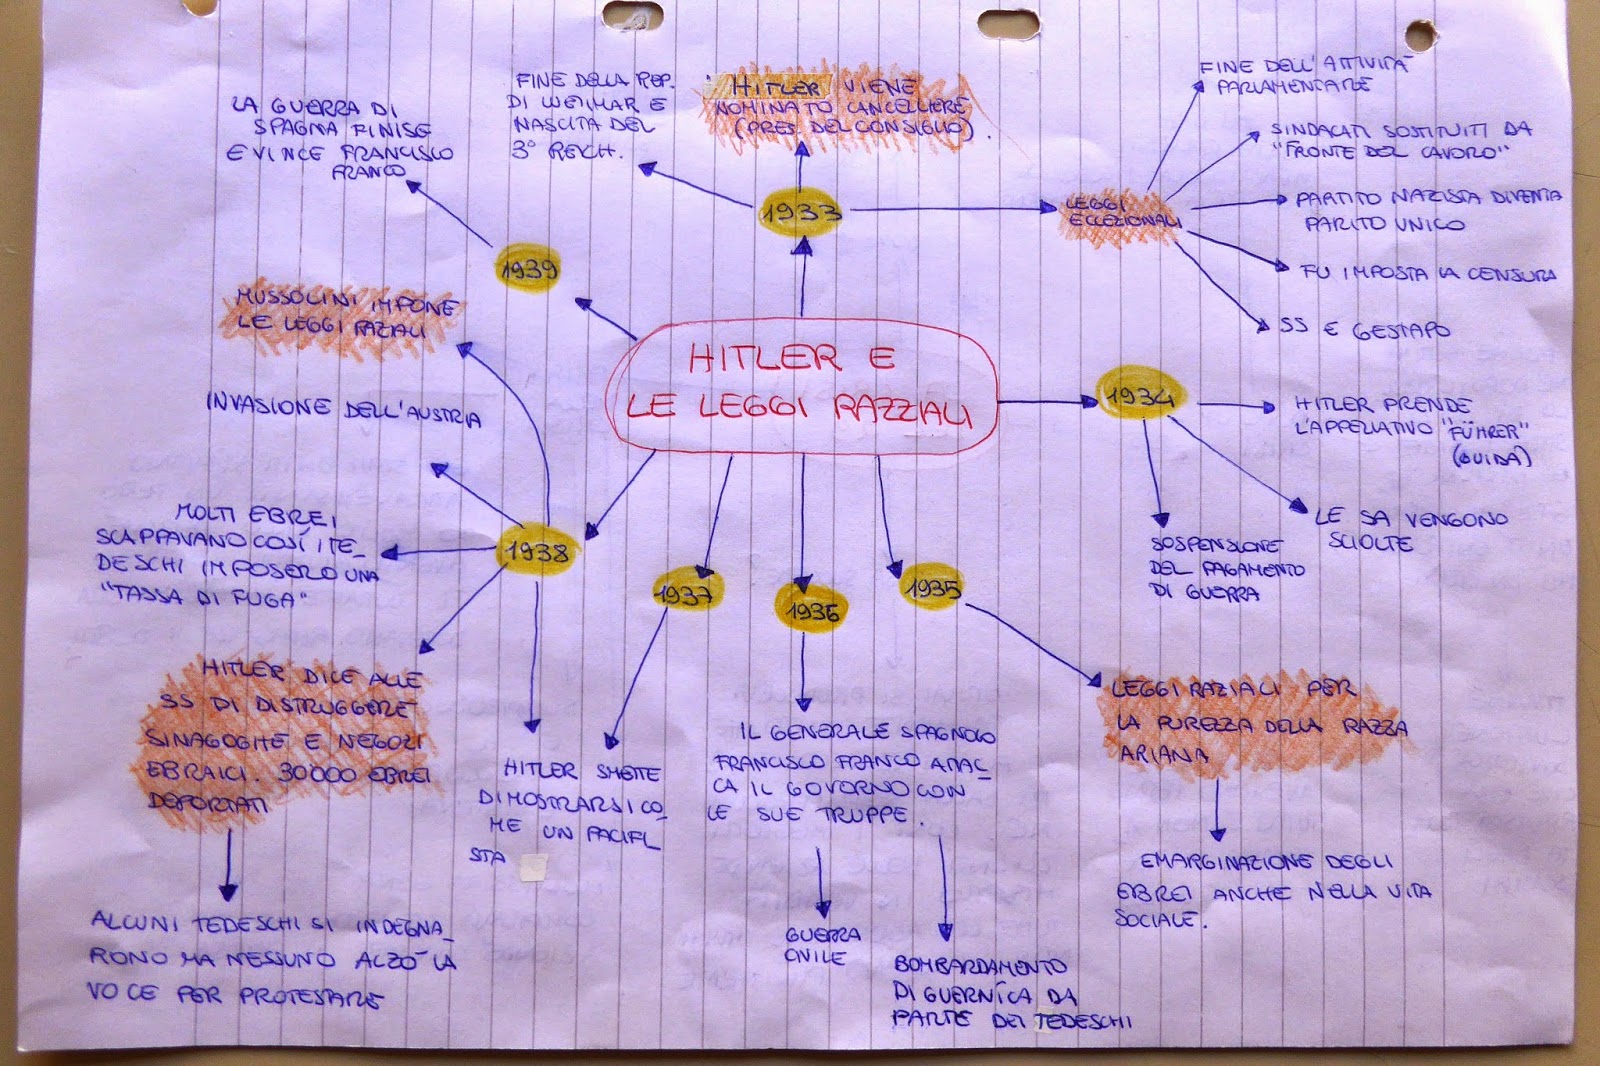 HITLER E
LE LEGGI RAZZIALI
1933
FINE DELLA REP.
DI WEIMAR E
NASCITA DEL
3° REICH.
HITLER VIENE
NOMINATO CANCELLIERE
(PRES. DEL CONSIGLIO).
LEGGI
ECCEZIONALI
FINE DELL'ATTIVITÀ
PARLAMENTARE
SINDACATI SOSTITUITI DA
"FRONTE DEL LAVORO"
PARTITO NAZISTA DIVENTA
PARITO UNICO
FU IMPOSTA LA CENSURA
SS E GESTAPO
1934
HITLER PRENDE
L'APPELLATIVO "FÜHRER"
(GUIDA)
LE SA VENGONO
SCIOLTE
SOSPENSIONE
DEL PAGAMENTO
DI GUERRA
1935
LEGGI RAZIALI PER
LA PUREZZA DELLA RAZZA
ARIANA
EMARGINAZIONE DEGLI
EBREI ANCHE NELLA VITA
SOCIALE.
1936
IL GENERALE SPAGNOLO
FRANCISCO FRANCO ATTAC_
CA IL GOVORNO CON
LE SUE TRUPPE.
GUERRA
CIVILE
BOMBARDAMENTO
DI GUERNÍCA DA
PARTE DEI TEDESCHI
1937
HITLER SMETTE
DI MOSTRARSI CO_
ME UN PACIFI_
STA
1938
MUSSOLINI IMPONE
LE LEGGI RAZIALI
INVASIONE DELL'AUSTRIA
MOLTI EBREI
SCAPPAVANO COSÍ I TE_
DESCHI IMPOSERO UNA
"TASSA DI FUGA"
HITLER DICE ALLE
SS DI DISTRUGGERE
SINAGOGHE E NEGOZI
EBRAICI. 30000 EBREI
DEPORTATI
ALCUNI TEDESCHI SI INDIGNA_
RONO MA NESSUNO ALZÓ LA
VOCE PER PROTESTARE
1939
LA GUERRA DI
SPAGNA FINISE
E VINCE FRANCISCO
FRANCO